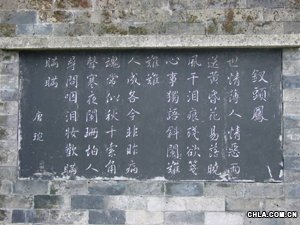 釵頭鳳
世情薄人情惡雨
送黃昏花易落曉
風干泪痕殘欲箋
心事獨語斜闌難
難難
人成各今非昨病
魂常似秋千索角
聲寒夜闌珊怕人
尋問咽泪妝歡瞞
瞞瞞
唐琬
WWW.CHLA.COM.CN
CHLA.COM.CN